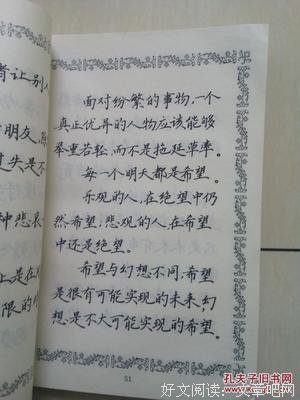 者让别人
朋友,
过失是不
种悲哀
上是在
限的
面对纷繁的事物,一个
真正优异的人物应该能够
举重若轻,而不是拖延草率。
每一个明天都是希望。
乐观的人,在绝望中仍
然希望;悲观的人,在希望
中还是绝望。
希望与幻想不同,希望
是很有可能实现的未来,幻
想是不大可能实现的希望。
51
孔夫子旧书网
好文阅读:文章吧网